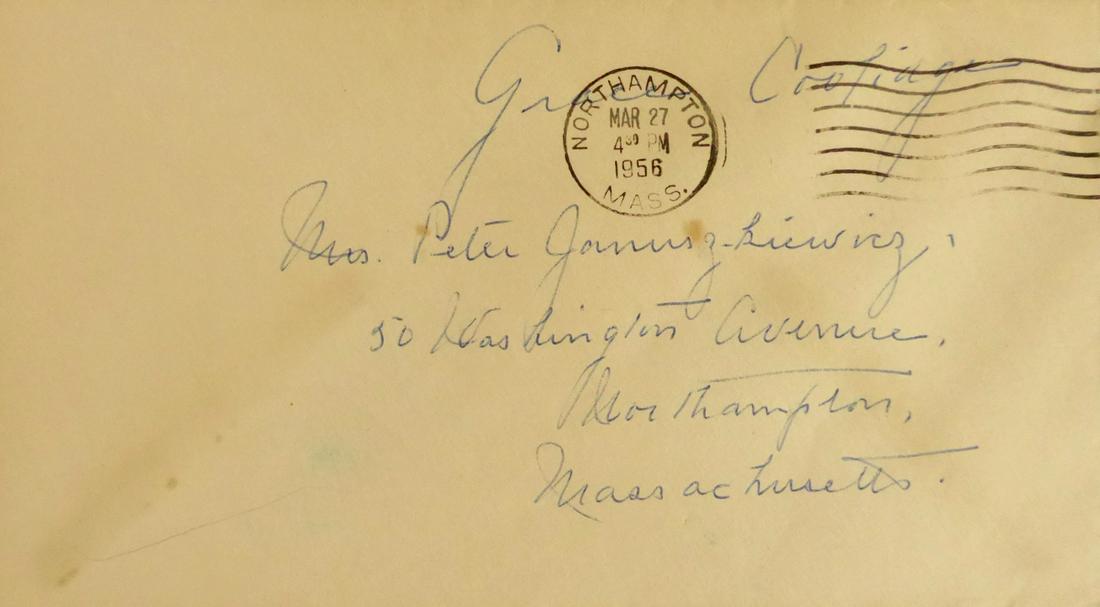 Grace Coolidge
NORTHAMPTON
MAR 27
4 30 PM
1956
MASS.
Mrs. Peter Januszkiewicz,
50 Washington Avenue,
Northampton,
Massachusetts.